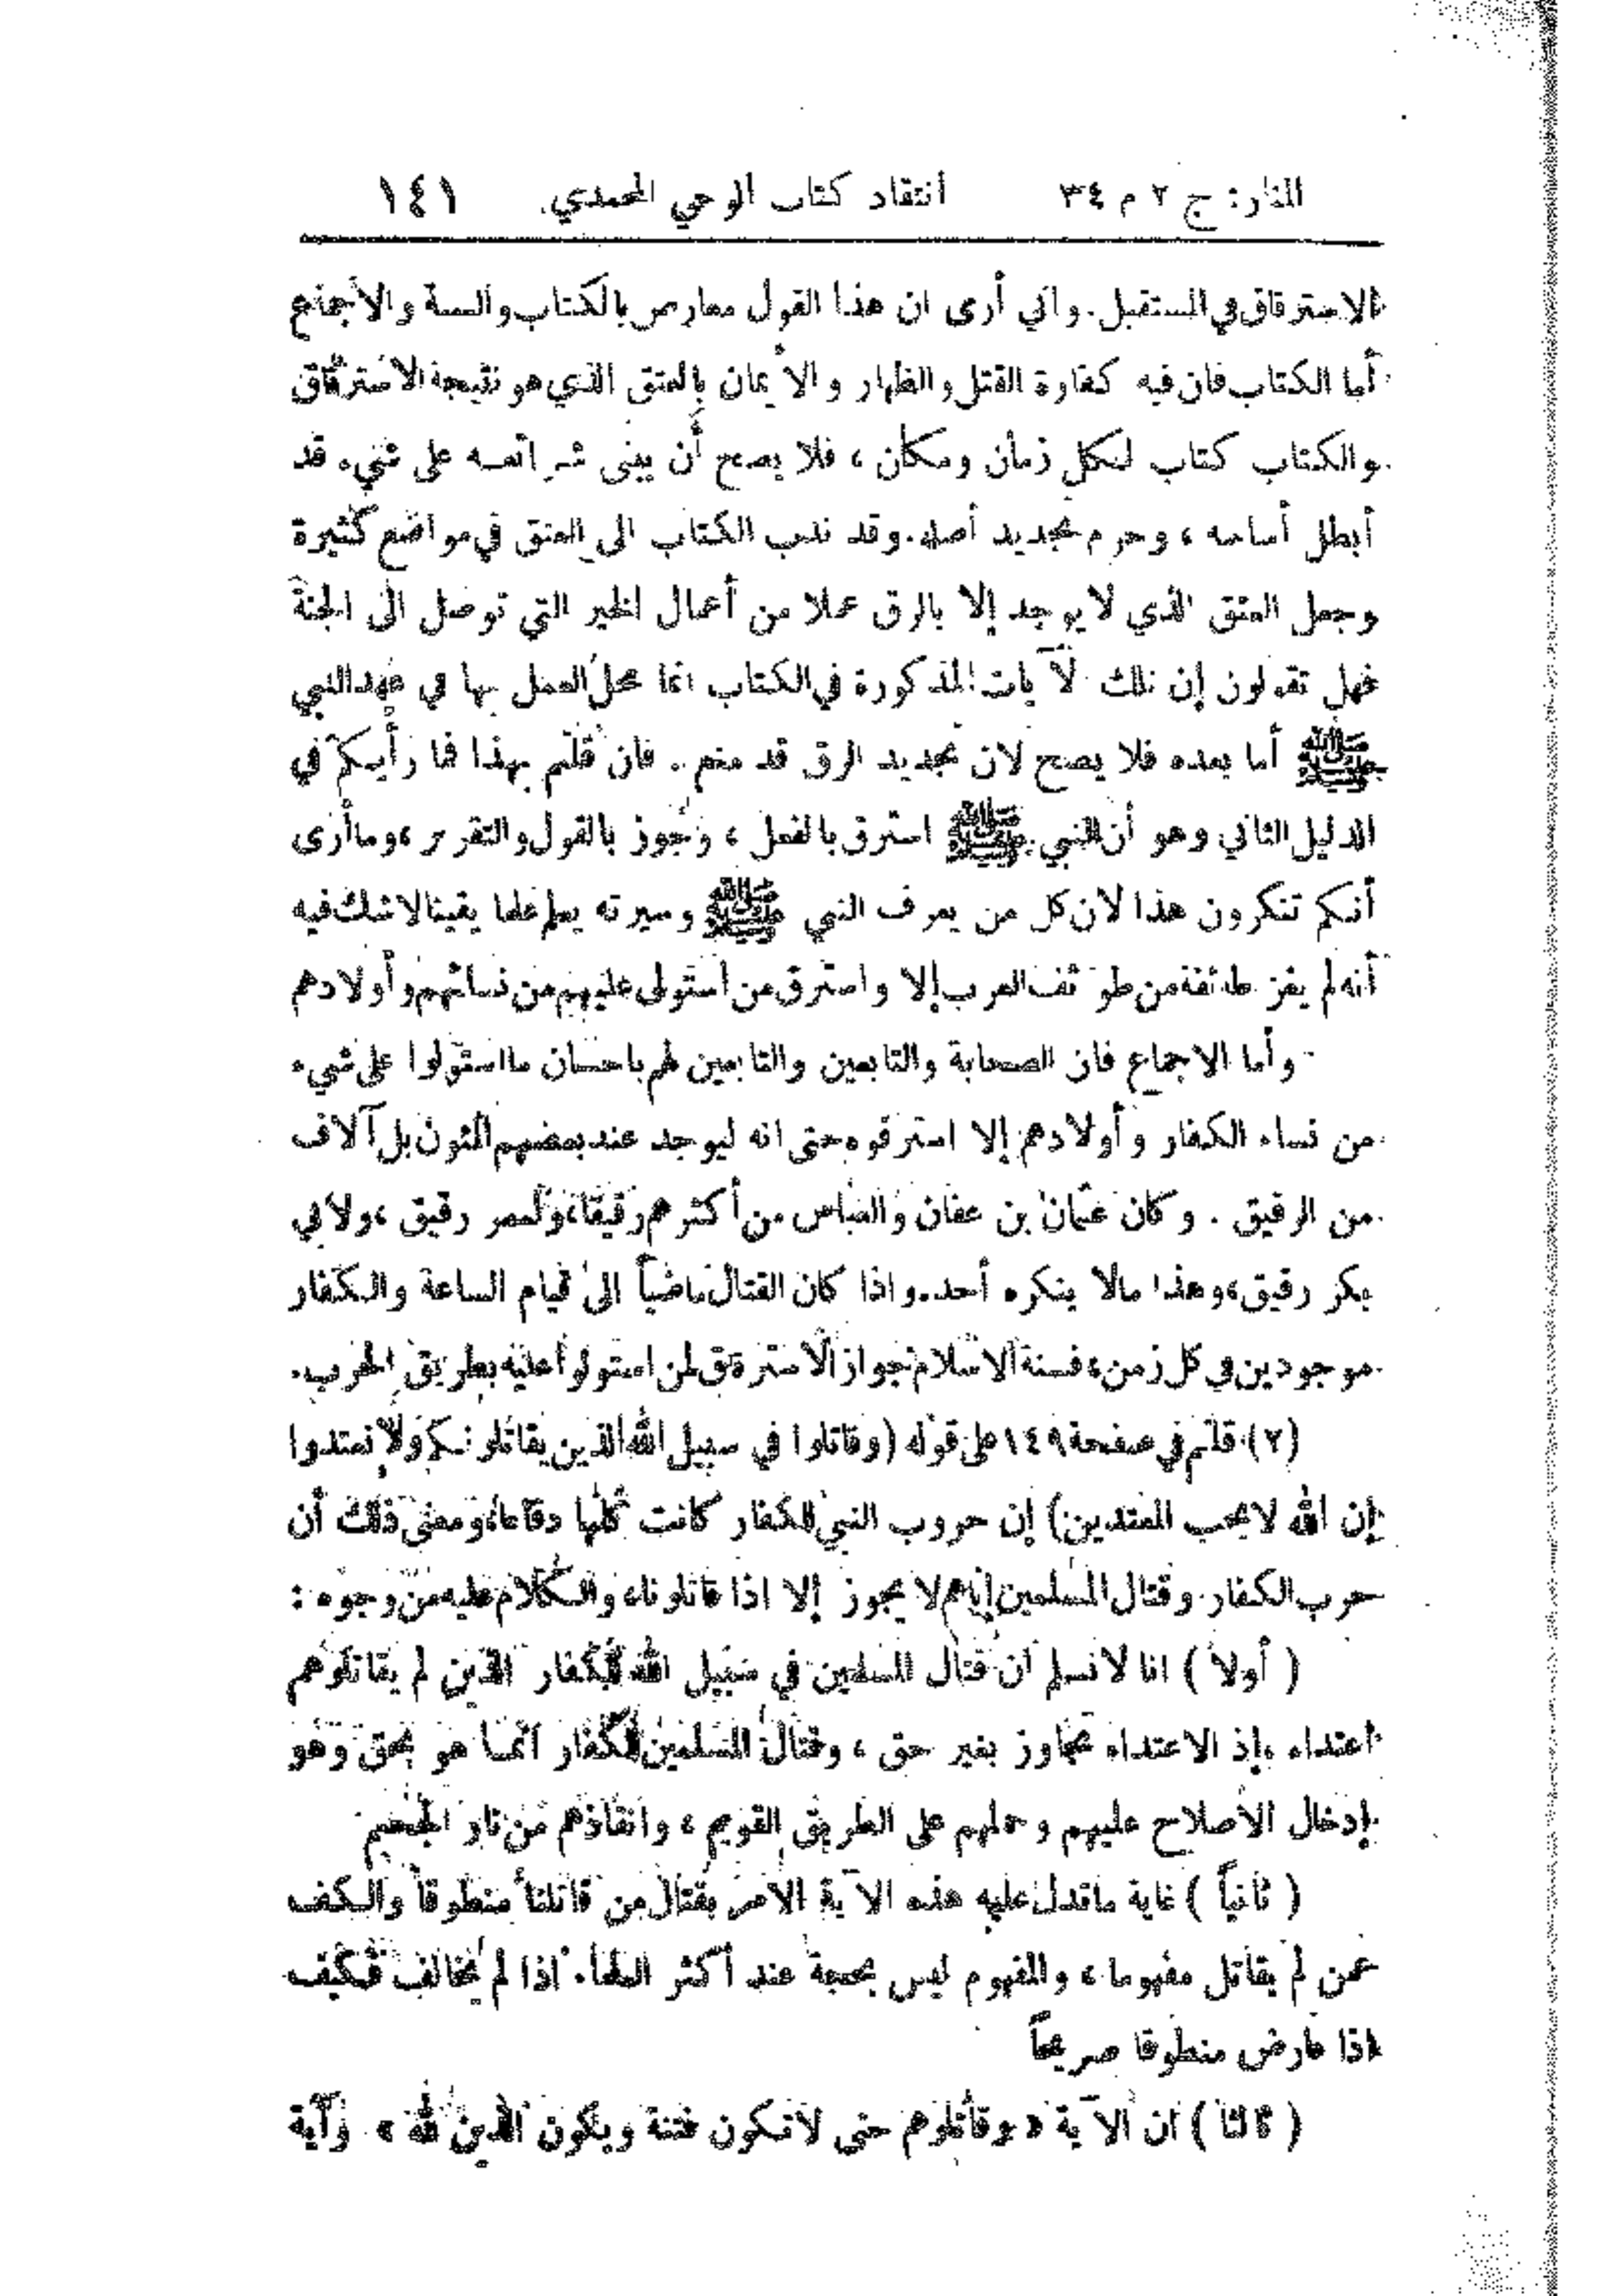 المنار: ج ٢ م ٣٤ انتقاد كتاب الوحي المحمدي ١٤١
الاسترقاق في المستقبل. واني أرى ان هذا القول معارض بالكتاب والسنة والاجماع
أما الكتاب فان فيه كفارة القتل والظهار والأيمان بالعتق الذي هو نتيجة الاسترقاق
والكتاب كتاب لكل زمان ومكان ، فلا يصح أن يبنى شرائعه على شيء قد
أبطل أساسه ، وحرم تجديد أصله. وقد ندب الكتاب الى العتق في مواضع كثيرة
وجعل العتق الذي لا يوجد إلا بالرق عملا من أعمال الخير التي توصل الى الجنة
فهل تقولون إن تلك الآيات المذكورة في الكتاب انما محل العمل بها في عهد النبي
ﷺ أما بعده فلا يصح لان تجديد الرق قد منع . فان قلتم بهذا فما رأيكم في
الدليل الثاني وهو أن النبي ﷺ استرق بالفعل ، وجوز بالقول والتقرير ، وما أرى
أنكم تنكرون هذا لان كل من يعرف النبي ﷺ وسيرته يعلم علما يقينا لا شك فيه
أنه لم يغز طائفة من طوائف العرب إلا واسترق من استولى عليهم من نسائهم وأولادهم
وأما الاجماع فان الصحابة والتابعين والتابعين لهم باحسان ما استولوا على شيء
من نساء الكفار وأولادهم إلا استرقوه حتى انه ليوجد عند بعضهم المئون بل آلاف
من الرقيق . وكان عثمان بن عفان والعباس من أكثرهم رقيقا، ولعمر رقيق ، ولابي
بكر رقيق، وهذا مالا ينكره أحد. واذا كان القتال ماضياً الى قيام الساعة والكفار
موجودين في كل زمن، فسنة الاسلام جواز الاسترقاق لمن استولوا عليه بطريق الحرب.
(٢) قلتم في صفحة ١٤٩ على قوله (وقاتلوا في سبيل الله الذين يقاتلونكم ولا تعتدوا
إن الله لا يحب المعتدين) إن حروب النبي للكفار كانت كلها دفاعا، ومعنى ذلك أن
حرب الكفار وقتال المسلمين إياهم لا يجوز إلا اذا قاتلونا، والكلام عليه من وجوه :
( أولا ) انا لا نسلم أن قتال المسلمين في سبيل الله للكفار الذين لم يقاتلوهم
اعتداء ، إذ الاعتداء تجاوز بغير حق ، وقتال المسلمين للكفار انما هو بحق وهو
إدخال الأصلاح عليهم وحملهم على الطريق القويم ، وانقاذهم من نار الجحيم
( ثانياً ) غاية ما تدل عليه هذه الآية الأمر بقتال من قاتلنا منطوقاً والكف
عمن لم يقاتل مفهوما ، والمفهوم ليس بحجة عند أكثر العلما. اذا لم يخالف فكيف
اذا عارض منطوقا صريحاً
( ثالثا ) ان الآية « وقاتلوهم حتى لا تكون فتنة ويكون الدين لله » وآية